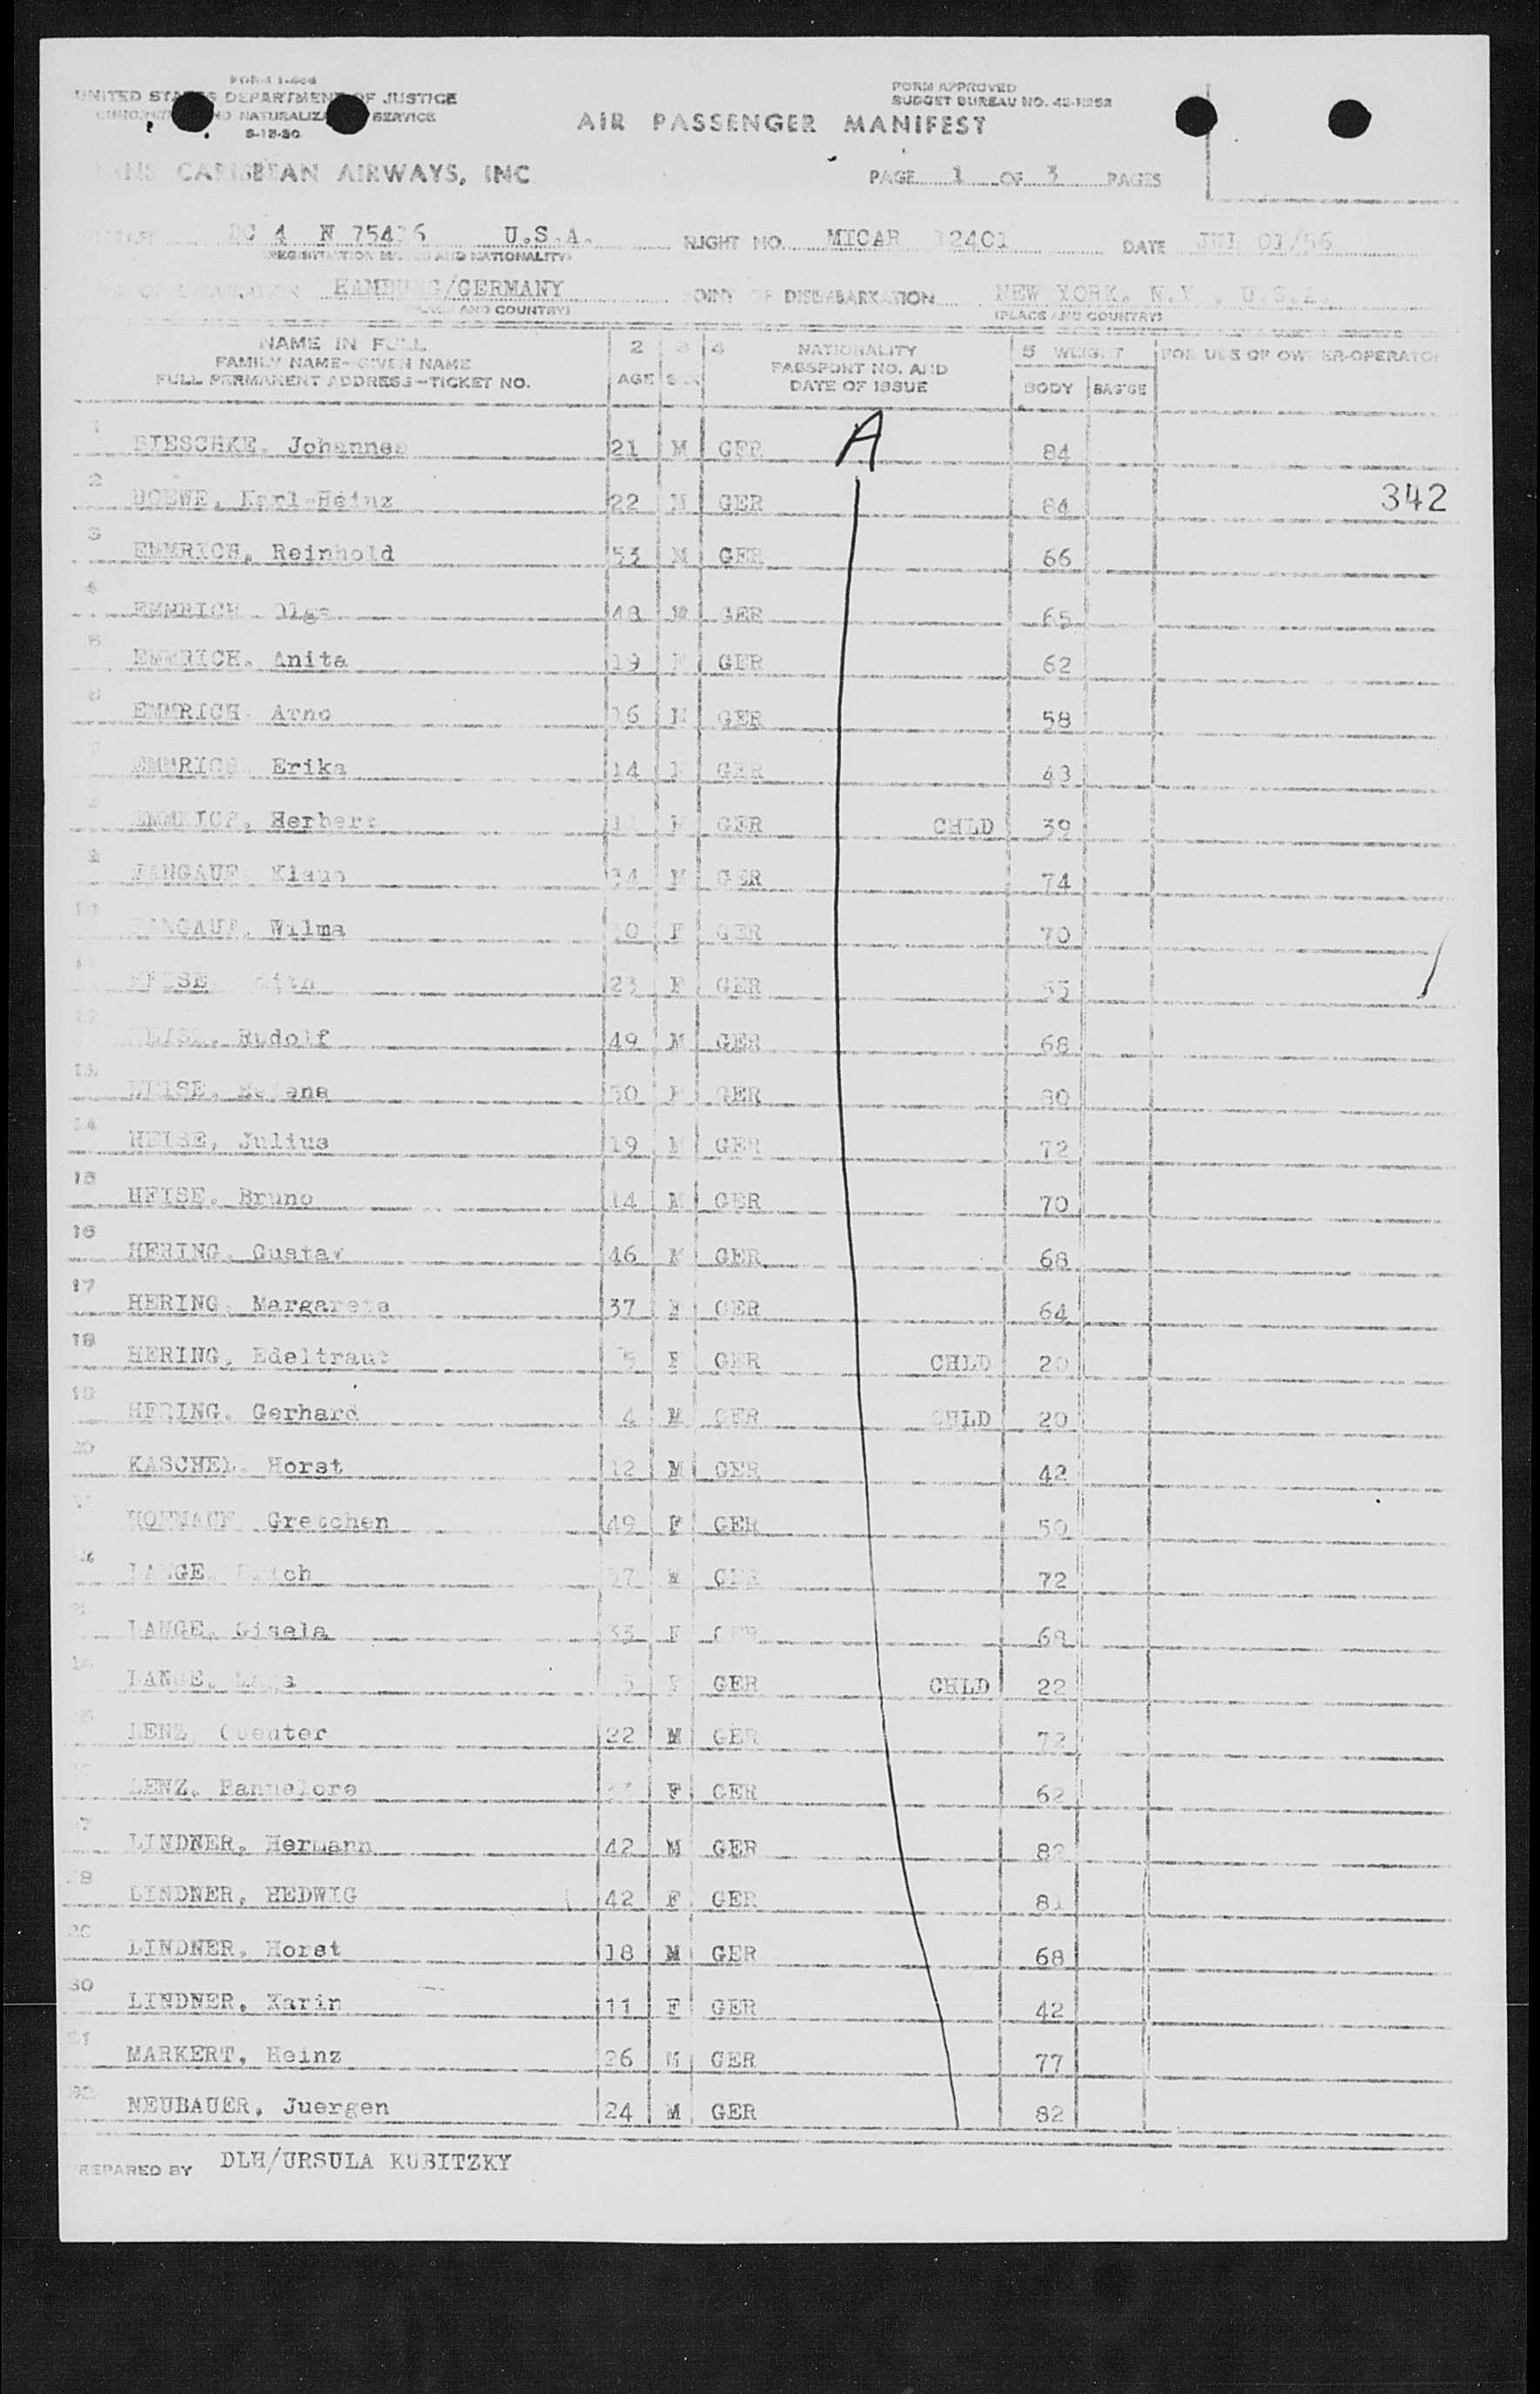 FORM I-466
UNITED STATES DEPARTMENT OF JUSTICE
NATURALIZATION SERVICE
FORM APPROVED
BUDGET BUREAU NO.
AIR PASSENGER MANIFEST
CARIBBEAN AIRWAYS, INC
PAGE 1 OF 3 PAGES
DC 4 N U.S.A. FLIGHT NO. MICAR 12401 DATE JUL 01/56
REGISTRATION MARKS AND NATIONALITY
HAMBURG/GERMANY POINT OF DISEMBARKATION NEW YORK, N.Y., U.S.A.
(PLACE AND COUNTRY) (PLACE AND COUNTRY)
NAME IN FULL 2 3 4 NATIONALITY 5 WEIGHT FOR USE OF OWNER-OPERATOR
FAMILY NAME-GIVEN NAME PASSPORT NO. AND
FULL PERMANENT ADDRESS-TICKET NO. AGE SEX DATE OF ISSUE BODY BAG'GE
A
1 Johannes 21 M GER 84
2 DOEWE, Karl-Heinz 22 M GER 84 342
3 EMMRICH, Reinhold 53 M GER 66
4 EMMRICH Olga 48 GER 65
5 EMMRICH, Anita 19 GER 62
6 EMMRICH Arno 16 M GER 58
EMMRICH Erika 14 GER 43
EMMRICH, Herbert GER CHLD 39
FANGAUF Klaus 34 M GER 74
FANGAUF, Wilma F GER 70
HEISE 23 F GER 55
HEISE, Rudolf 49 M GER 68
13 HEISE, Helena 50 F GER 80
14 HEISE, Julius 19 M GER 72
15 HEISE, Bruno 14 M GER 70
16 HERING, Gustav 46 M GER 68
17 HERING, Margarete 37 F GER 64
18 HERING, Edeltraut 5 F GER CHLD 20
19 HERING, Gerhard 4 M GER CHLD 20
20 KASCHEL, Horst 12 M GER 42
Gretchen 49 F GER 50
LANGE, M GER 72
LANGE, Gisela 33 F GER 68
LANGE, F GER CHLD 22
LENZ, Guenter 22 M GER 72
LENZ, Hannelore F GER 62
27 LINDNER, Hermann 42 M GER 82
28 LINDNER, HEDWIG 42 F GER 81
29 LINDNER, Horst 18 M GER 68
30 LINDNER, Karin 11 F GER 42
31 MARKERT, Heinz 26 M GER 77
32 NEUBAUER, Juergen 24 M GER 82
PREPARED BY DLH/URSULA KUBITZKY